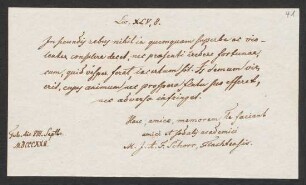 Liv. XLV, 8.
In secundis rebus nihil in quemquam superbe ac vio-
lenter consulere decet, nec praesenti credere fortunae,
cum, quid vesper ferat, incertum sit. Is demum vir
erit, cujus animum nec prosperae flatus suo efferet,
nec adversa infringet.
Haec, amice, memorem Te faciant
amici et sodalis academici
M. J. A. F.
MDCCCXXX.